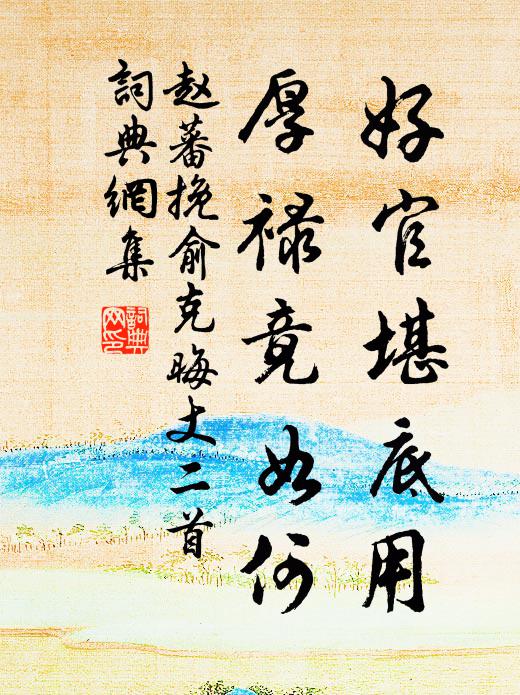 好官堪底用
厚禄竟如何
赵蕃挽俞克晦丈二首
詞典網集
詞典网印